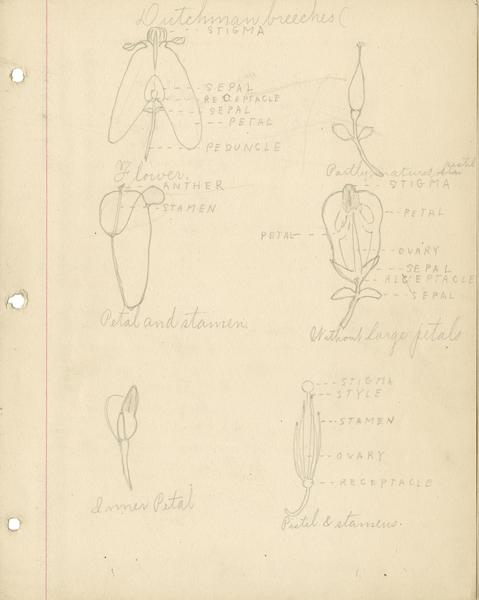 Dutchman breeches (
STIGMA
SEPAL
RECEPTACLE
SEPAL
PETAL
PEDUNCLE
Flower.
Partly matured pistil
ANTHER
STAMEN
Petal and stamen.
STIGMA
PETAL
PETAL
OVARY
SEPAL
RECEPTACLE
SEPAL
Without large petals
Inner Petal
STIGMA
STYLE
STAMEN
OVARY
RECEPTACLE
Pistil & stamens.